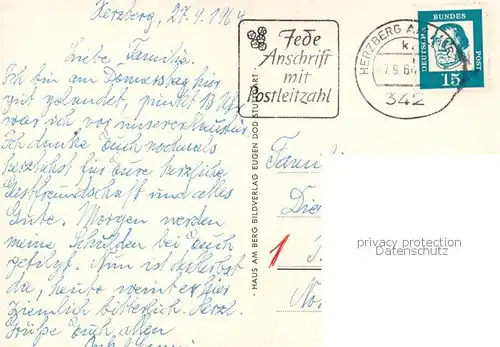 Herzberg, 27.9.1964
Liebe Familie
Ich bin am Donnerstag hier
gut gelandet, punkt 13 Uhr
war ich vor unserer Haustür.
Ich danke Euch nochmals
herzlichst für Eure herzliche
Gastfreundschaft und alles
Gute. Morgen werden
meine Schulden bei Euch
getilgt. Nun ist Herbst
da, heute weint er hier
ziemlich bitterlich. Herzl.
Grüße Euch allen
Jede
Anschrift
mit
Postleitzahl
HERZBERG A. HARZ
7.9.64
342
DEUTSCHE BUNDES POST
15
HAUS AM BERG BILDVERLAG EUGEN DOD STUTTGART
Familie
Die
1
No
privacy protection
Datenschutz